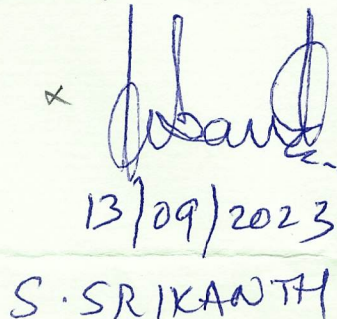 13/09/2023
S. SRIKANTH